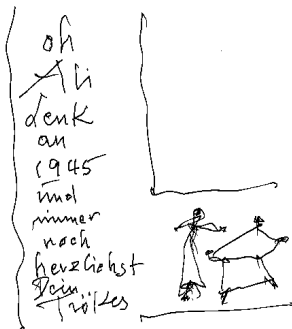 oh
Ali
denk
an
1945
und
immer
noch
herzlichst
Dein
Trökes